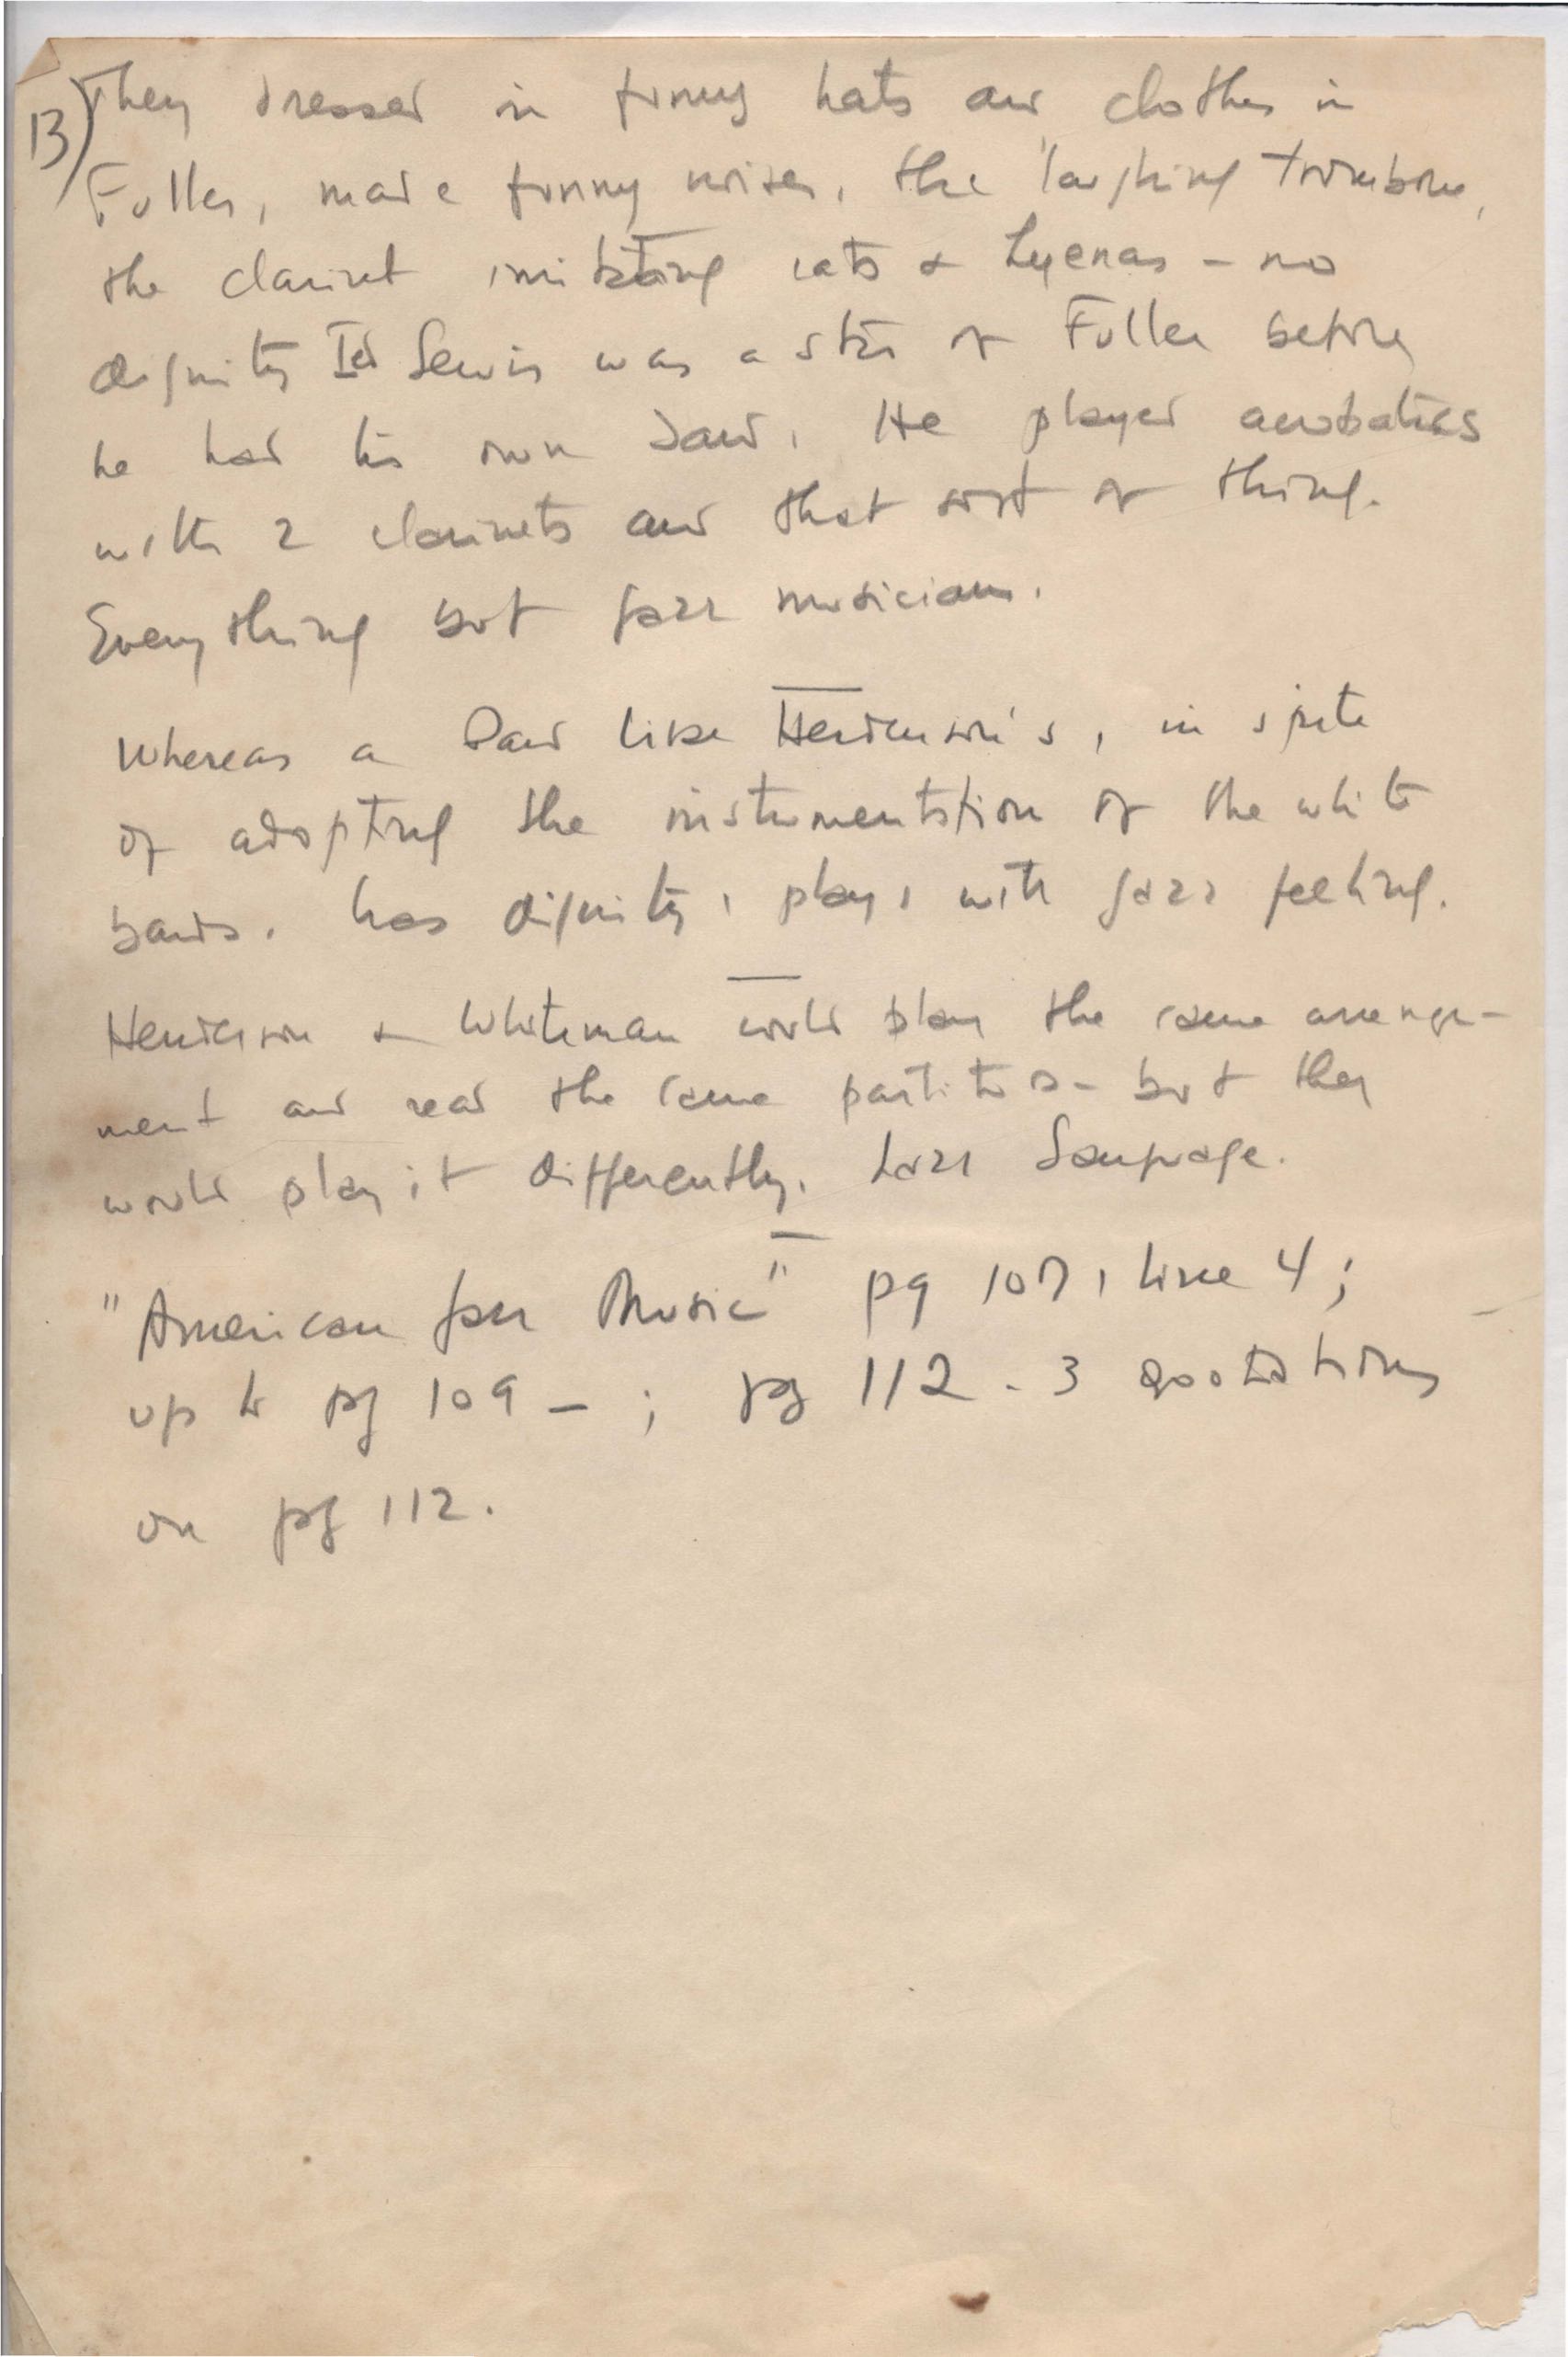 13) They dressed in funny hats and clothes in
Fuller, made funny noises, the laughing trombone,
the clarinet imitating cats & hyenas - no
dignity Ted Lewis was a star of Fuller before
he had his own band. He played acrobatics
with 2 clarinets and that sort of thing.
Everything but jazz musicians.
Whereas a band like Henderson's, in spite
of adopting the instrumentation of the white
bands, has dignity, plays with jazz feeling.
Henderson & Whiteman could play the same arrange-
ment and read the same partitura - but they
would play it differently. Jazz Language.
"American Jazz Music" pg 107, line 4;
up to pg 109 - ; pg 112 - 3 quotations
on pg 112.